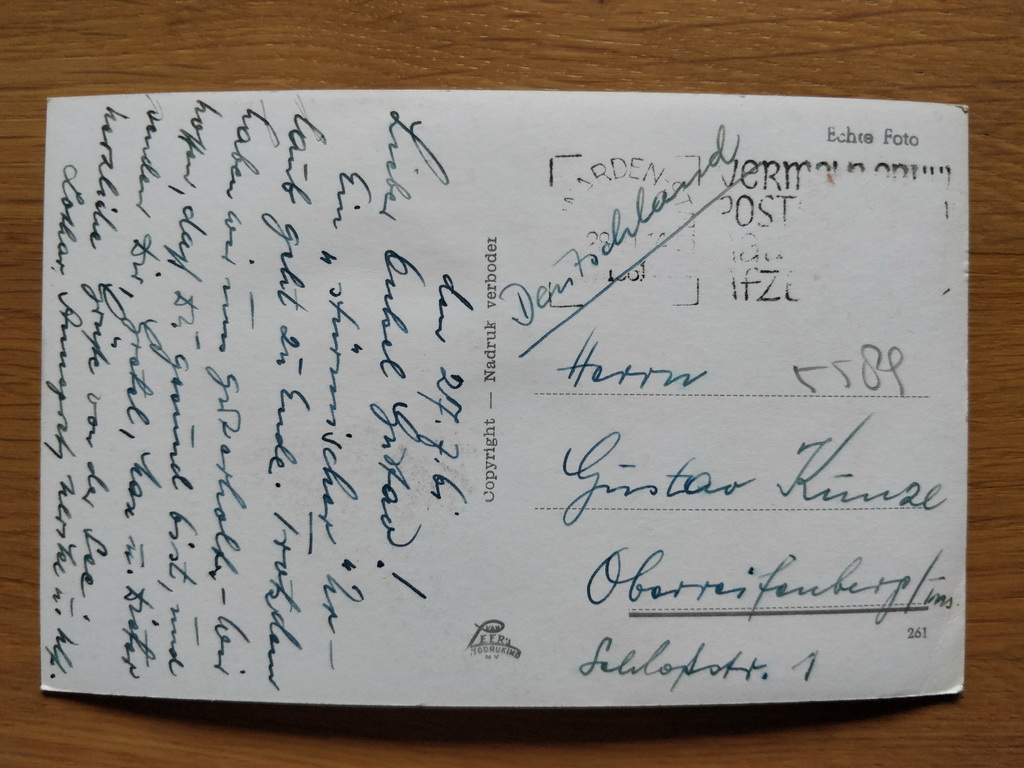 den 27. 7. 61
Lieber Onkel Gustav!
Ein "stürmischer" Ur-
laub geht zu Ende. Trotzdem
haben wir uns gut erholt – wir
hoffen, daß Du gesund bist, und
senden Dir, Gretel, Max u. Dieter
herzliche Grüße von der See
Lothar, Annegret,
Copyright — Nadruk verboden
Echte Foto
POST
Deutschland
Herrn
5589
Gustav Kunze
Oberreifenberg/Tns.
261
Schloßstr. 1
VAN
LEER'S
FOTODRUKIND
N.V.